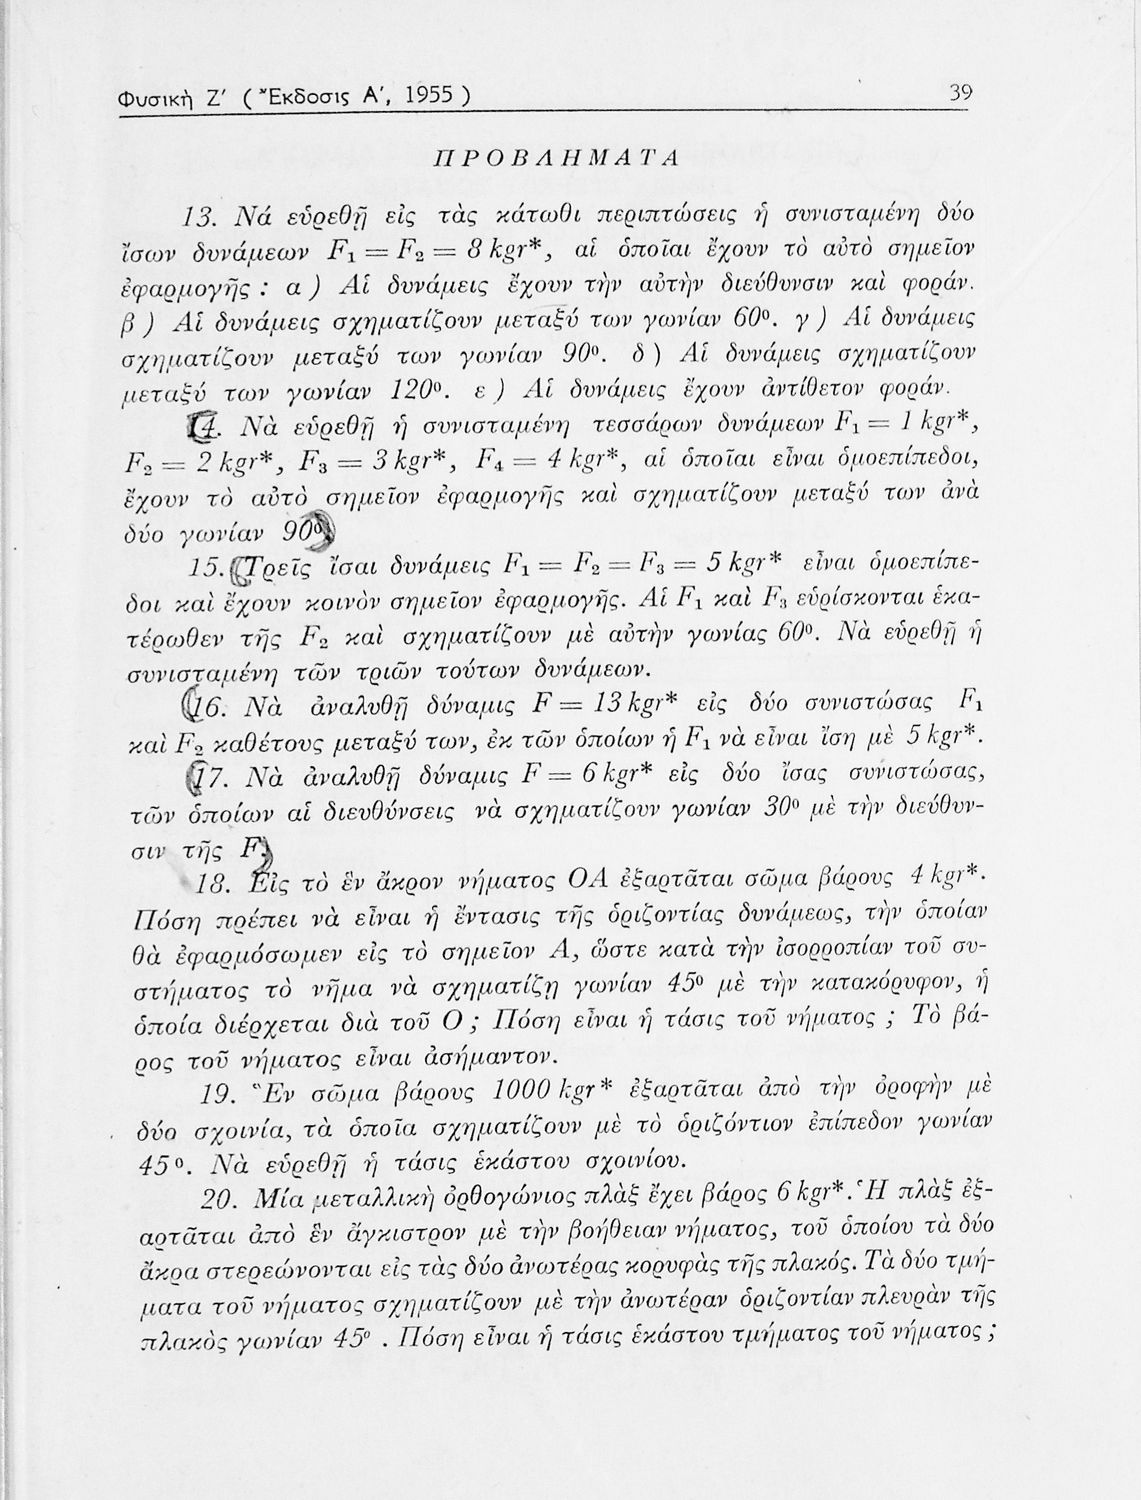 Φυσικὴ Ζ′ ( Ἔκδοσις Α′, 1955 ) 39
ΠΡΟΒΛΗΜΑΤΑ
13. Νά εὑρεθῇ εἰς τὰς κάτωθι περιπτώσεις ἡ συνισταμένη δύο
ἴσων δυνάμεων F₁ = F₂ = 8 kgr*, αἱ ὁποῖαι ἔχουν τὸ αὐτὸ σημεῖον
ἐφαρμογῆς : α ) Αἱ δυνάμεις ἔχουν τὴν αὐτὴν διεύθυνσιν καὶ φοράν.
β ) Αἱ δυνάμεις σχηματίζουν μεταξύ των γωνίαν 60⁰. γ ) Αἱ δυνάμεις
σχηματίζουν μεταξύ των γωνίαν 90⁰. δ ) Αἱ δυνάμεις σχηματίζουν
μεταξύ των γωνίαν 120⁰. ε ) Αἱ δυνάμεις ἔχουν ἀντίθετον φοράν.
14. Νὰ εὑρεθῇ ἡ συνισταμένη τεσσάρων δυνάμεων F₁ = 1 kgr*,
F₂ = 2 kgr*, F₃ = 3 kgr*, F₄ = 4 kgr*, αἱ ὁποῖαι εἶναι ὁμοεπίπεδοι,
ἔχουν τὸ αὐτὸ σημεῖον ἐφαρμογῆς καὶ σχηματίζουν μεταξύ των ἀνὰ
δύο γωνίαν 90⁰.
15. Τρεῖς ἴσαι δυνάμεις F₁ = F₂ = F₃ = 5 kgr* εἶναι ὁμοεπίπε-
δοι καὶ ἔχουν κοινὸν σημεῖον ἐφαρμογῆς. Αἱ F₁ καὶ F₃ εὑρίσκονται ἑκα-
τέρωθεν τῆς F₂ καὶ σχηματίζουν μὲ αὐτὴν γωνίας 60⁰. Νὰ εὑρεθῇ ἡ
συνισταμένη τῶν τριῶν τούτων δυνάμεων.
16. Νὰ ἀναλυθῇ δύναμις F = 13 kgr* εἰς δύο συνιστώσας F₁
καὶ F₂ καθέτους μεταξύ των, ἐκ τῶν ὁποίων ἡ F₁ νὰ εἶναι ἴση μὲ 5 kgr*.
17. Νὰ ἀναλυθῇ δύναμις F = 6 kgr* εἰς δύο ἴσας συνιστώσας,
τῶν ὁποίων αἱ διευθύνσεις νὰ σχηματίζουν γωνίαν 30⁰ μὲ τὴν διεύθυν-
σιν τῆς F.
18. Εἰς τὸ ἓν ἄκρον νήματος ΟΑ ἐξαρτᾶται σῶμα βάρους 4 kgr*.
Πόση πρέπει νὰ εἶναι ἡ ἔντασις τῆς ὁριζοντίας δυνάμεως, τὴν ὁποίαν
θὰ ἐφαρμόσωμεν εἰς τὸ σημεῖον Α, ὥστε κατὰ τὴν ἰσορροπίαν τοῦ συ-
στήματος τὸ νῆμα νὰ σχηματίζῃ γωνίαν 45⁰ μὲ τὴν κατακόρυφον, ἡ
ὁποία διέρχεται διὰ τοῦ Ο ; Πόση εἶναι ἡ τάσις τοῦ νήματος ; Τὸ βά-
ρος τοῦ νήματος εἶναι ἀσήμαντον.
19. Ἓν σῶμα βάρους 1000 kgr* ἐξαρτᾶται ἀπὸ τὴν ὀροφὴν μὲ
δύο σχοινία, τὰ ὁποῖα σχηματίζουν μὲ τὸ ὁριζόντιον ἐπίπεδον γωνίαν
45⁰. Νὰ εὑρεθῇ ἡ τάσις ἑκάστου σχοινίου.
20. Μία μεταλλικὴ ὀρθογώνιος πλὰξ ἔχει βάρος 6 kgr*. Ἡ πλὰξ ἐξ-
αρτᾶται ἀπὸ ἓν ἄγκιστρον μὲ τὴν βοήθειαν νήματος, τοῦ ὁποίου τὰ δύο
ἄκρα στερεώνονται εἰς τὰς δύο ἀνωτέρας κορυφὰς τῆς πλακός. Τὰ δύο τμή-
ματα τοῦ νήματος σχηματίζουν μὲ τὴν ἀνωτέραν ὁριζοντίαν πλευρὰν τῆς
πλακὸς γωνίαν 45⁰ . Πόση εἶναι ἡ τάσις ἑκάστου τμήματος τοῦ νήματος ;